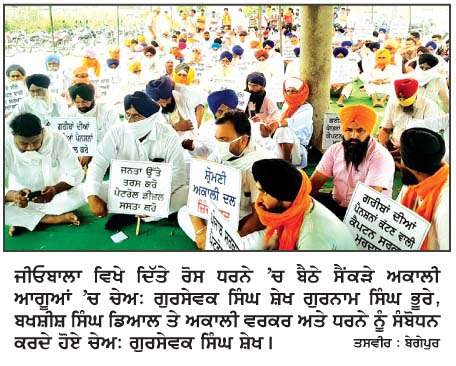 ਗਰੀਬਾਂ ਦੀਆਂ
ਪੈਨਸ਼ਨਾਂ
ਬਹਾਲ ਕਰੋ
ਜਨਤਾ ਉੱਤੇ
ਤਰਸ ਕਰੋ
ਪੈਟਰੋਲ ਡੀਜ਼ਲ
ਸਸਤਾ ਕਰੋ
ਸ਼੍ਰੋਮਣੀ
ਅਕਾਲੀ ਦਲ
ਗਰੀਬਾਂ ਦੀਆਂ
ਪੈਨਸ਼ਨਾਂ ਕੱਟਣ ਵਾਲੀ
ਕੈਪਟਨ ਸਰਕਾਰ
ਮੁਰਦਾਬਾਦ
ਜੀਓਬਾਲਾ ਵਿਖੇ ਦਿੱਤੇ ਰੋਸ ਧਰਨੇ 'ਚ ਬੈਠੇ ਸੈਂਕੜੇ ਅਕਾਲੀ
ਆਗੂਆਂ 'ਚ ਚੇਅ: ਗੁਰਸੇਵਕ ਸਿੰਘ ਸ਼ੇਖ ਗੁਰਨਾਮ ਸਿੰਘ ਭੂਰੇ,
ਬਖਸ਼ੀਸ਼ ਸਿੰਘ ਡਿਆਲ ਤੇ ਅਕਾਲੀ ਵਰਕਰ ਅਤੇ ਧਰਨੇ ਨੂੰ ਸੰਬੋਧਨ
ਕਰਦੇ ਹੋਏ ਚੇਅ: ਗੁਰਸੇਵਕ ਸਿੰਘ ਸ਼ੇਖ।
ਤਸਵੀਰ : ਬੇਗੇਪੁਰ